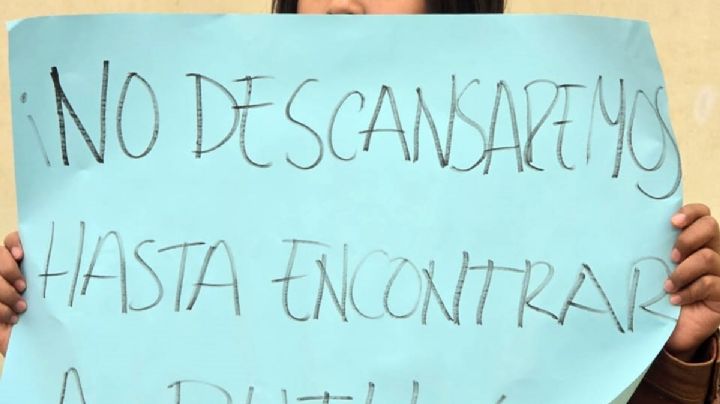 ¡NO DESCANSAREMOS
HASTA ENCONTRAR
A